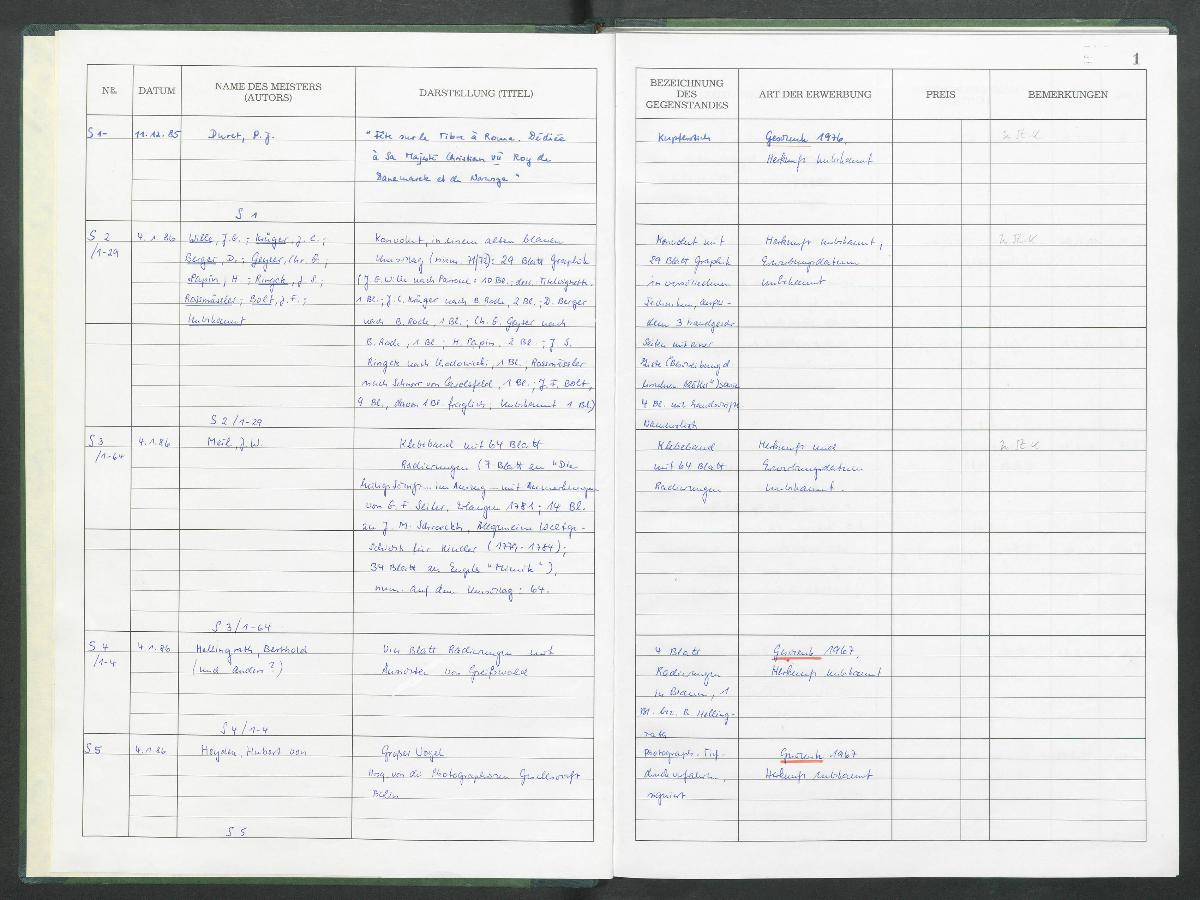 1
NR.
DATUM
NAME DES MEISTERS
(AUTORS)
DARSTELLUNG (TITEL)
BEZEICHNUNG
DES
GEGENSTANDES
ART DER ERWERBUNG
PREIS
BEMERKUNGEN
S 1-
11.12.85
Duret, P. J.
"Fête sur le Tibre à Rome. Dédiée
à Sa Majesté Christian VII Roy de
Danemarck et de Norwège"
S 1
Kupferstich
Geschenk 1976,
Herkunft unbekannt
Z. St. K
S 2
/1-29
4.1.86
Wille, J.G.; Krüger, J. C.;
Berger, D.; Geyser, Chr. G.;
Papin, H; Ringck, J S.;
Rosmässler; Bolt, J.F.;
Unbekannt
Konvolut, in einem alten blauen
Umschlag (num. 71/72): 29 Blatt Graphik
(J. G. Wille nach Parrocel: 10 Bl.; dess. Titelvignette.
1 Bl.; J. C. Krüger nach B. Rode, 2 Bl.; D. Berger
nach B. Rode, 1 Bl.; Ch. G. Geyser nach
B. Rode, 1 Bl.; H. Papin, 2 Bl.; J S.
Ringck nach Chodowiecki, 1 Bl.; Rosmässler
nach Schnorr von Carolsfeld, 1 Bl.; J. F. Bolt,
9 Bl., davon 1 Bl. fraglich; Unbekannt 1 Bl.)
S 2/1-29
Konvolut mit
29 Blatt Graphik
in verschiedenen
Techniken, außer-
dem 3 handgeschr.
Seiten mit einer
Liste ("Beschreibung d.
4 Bl. mit handschriftl.
Herkunft unbekannt;
Erwerbungsdatum
unbekannt
Z. St. K
S 3
/1-64
4.1.86
Meil, J. W.
Klebeband mit 64 Blatt
Radierungen (7 Blatt zu "Die
heilige Schrift... im Auszug... mit Anmerkungen
von G. F. Seiler, Erlangen 1781; 14 Bl.
zu J. M. Schroeckh, Allgemeine Weltge-
schichte für Kinder (1779-1784);
34 Blatt zu Engels "Mimik"),
num. auf dem Umschlag: 64.
S 3/1-64
Klebeband
mit 64 Blatt
Radierungen
Herkunft und
Erwerbungsdatum
unbekannt.
Z. St. K
S 4
/1-4
4.1.86
Hellingrath, Berthold
(und andere?)
Vier Blatt Radierungen mit
Ansichten von Greifswald
S 4/1-4
4 Blatt
Radierungen
in Braun, 1
Bl. bez. B. Helling-
rath
Geschenk 1967,
Herkunft unbekannt
S 5
4.1.86
Heyden, Hubert von
Großer Vogel
Hrsg. von der Photographischen Gesellschaft
Berlin
S 5
Photograph. Tief-
druckverfahren,
signiert
Geschenk 1967
Herkunft unbekannt